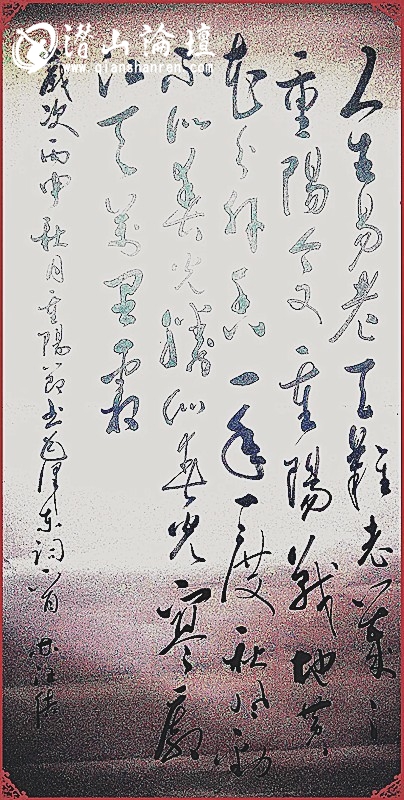 潜山論壇
www.qianshanren.com
人生易老天難老歲々
重陽今又重陽戰地黄
花分外香一年一度秋風勁
不似春光勝似春光寥廓
江天萬里霜
歲次丙申秋月重陽節書毛澤東詞一首